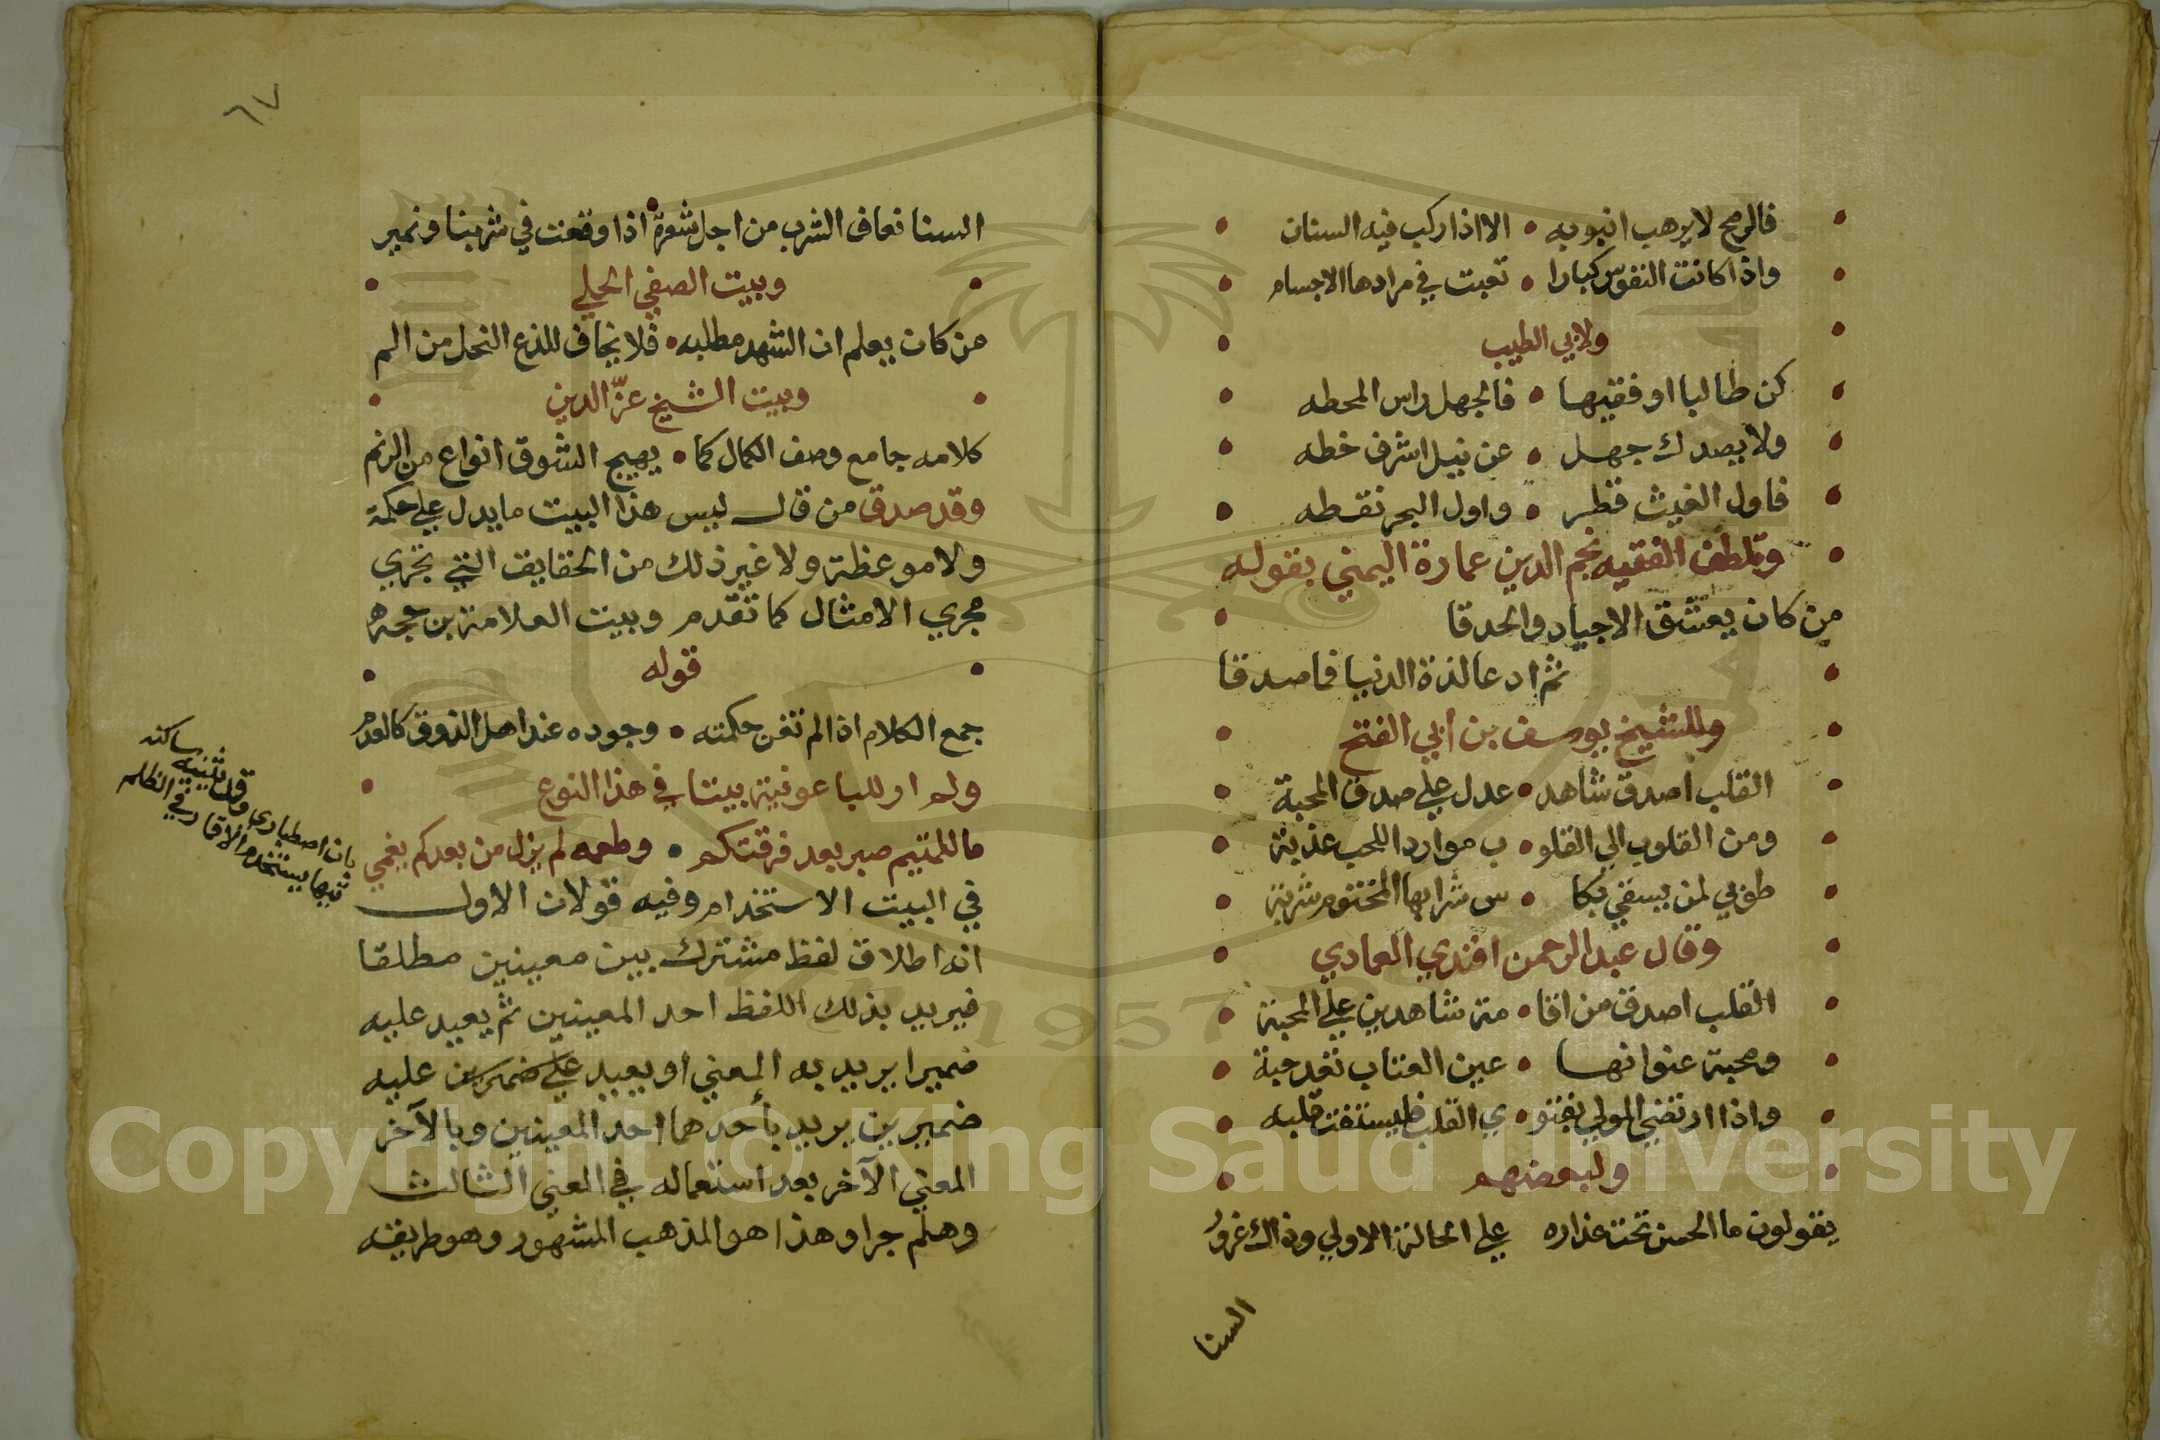 فالرمح لا يرهب انبوبه • الا اذا ركب فيه السنان
واذا كانت النفوس كبارا • تعبت في مرادها الاجسام
ولابي الطيب
كن طالبا او فقيها • فالجهل راس المحطه
ولا يصدك جهل • عن نيل اشرف خطه
فاول الغيث قطر • واول البحر نقطه
وتلطف الفقيه نجم الدين عمارة اليمني بقوله
من كان يعشق الاجياد والحدقا
ثم ادعا لذة الدنيا فما صدقا
وللشيخ يوسف بن ابي الفتح
القلب اصدق شاهد • عدل علي صدق المحبة
ومن القلوب الي القلو • ب موارد اللحب عذبة
طوبي لمن يسقي بكا • س شرابها المختوم شربة
وقال عبد الرحمن افندي العمادي
القلب اصدق من اقا • مة شاهدين علي المحبة
ومحبة عنوانها • عين العتاب تعد حبة
واذا ارتضي المولي بفتو • ي القلب فليستفت قلبه
ولبعضهم
يقولون ما الحسن تحت عذاره علي الحالة الاولي وذاك غرورُ
السنا
٦٧
السنا نعاف الشرب من اجل شعرة • اذا وقعت في شربنا ونمير
وبيت الصفي الحلي
من كان يعلم ان الشهد مطلبه • فلا يخاف للذع النحل من الم
وبيت الشيخ عزّ الدين
كلامه جامع وصف الكمال كما • يهيج الشوق انواع من الرنم
وقد صدق من قال ليس هذا البيت ما يدل علي حكمة
ولا موعظة ولا غير ذلك من الحقايق التي تجري
مجري الامثال كما تقدم وبيت العلامة بن حجه
قوله
جمع الكلام اذا لم تغن حكمته • وجوده عند اهل الذوق كالعدم
ولم ار للباعونية بيتا في هذا النوع
ما للمتيم صبر بعد فرقتكم • وطعمه لم يزل من بعدكم بفمي
في البيت الاستخدام وفيه قولان الاول
انه اطلاق لفظ مشترك بين معينين مطلقا
فيريد بذلك اللفظ احد المعينين ثم يعيد عليه
ضميرا يريد به المعني او يعيد علي عليه
ضميرين يريد بأحدهما احد المعينين وبالآخر
المعني الآخر بعد استعماله في المعني الثالث
وهلم جرا وهذا هو المذهب المشهور وهو طريقة
ساكنه
بان اصطباري
يستخدم الاقمار في الظلم